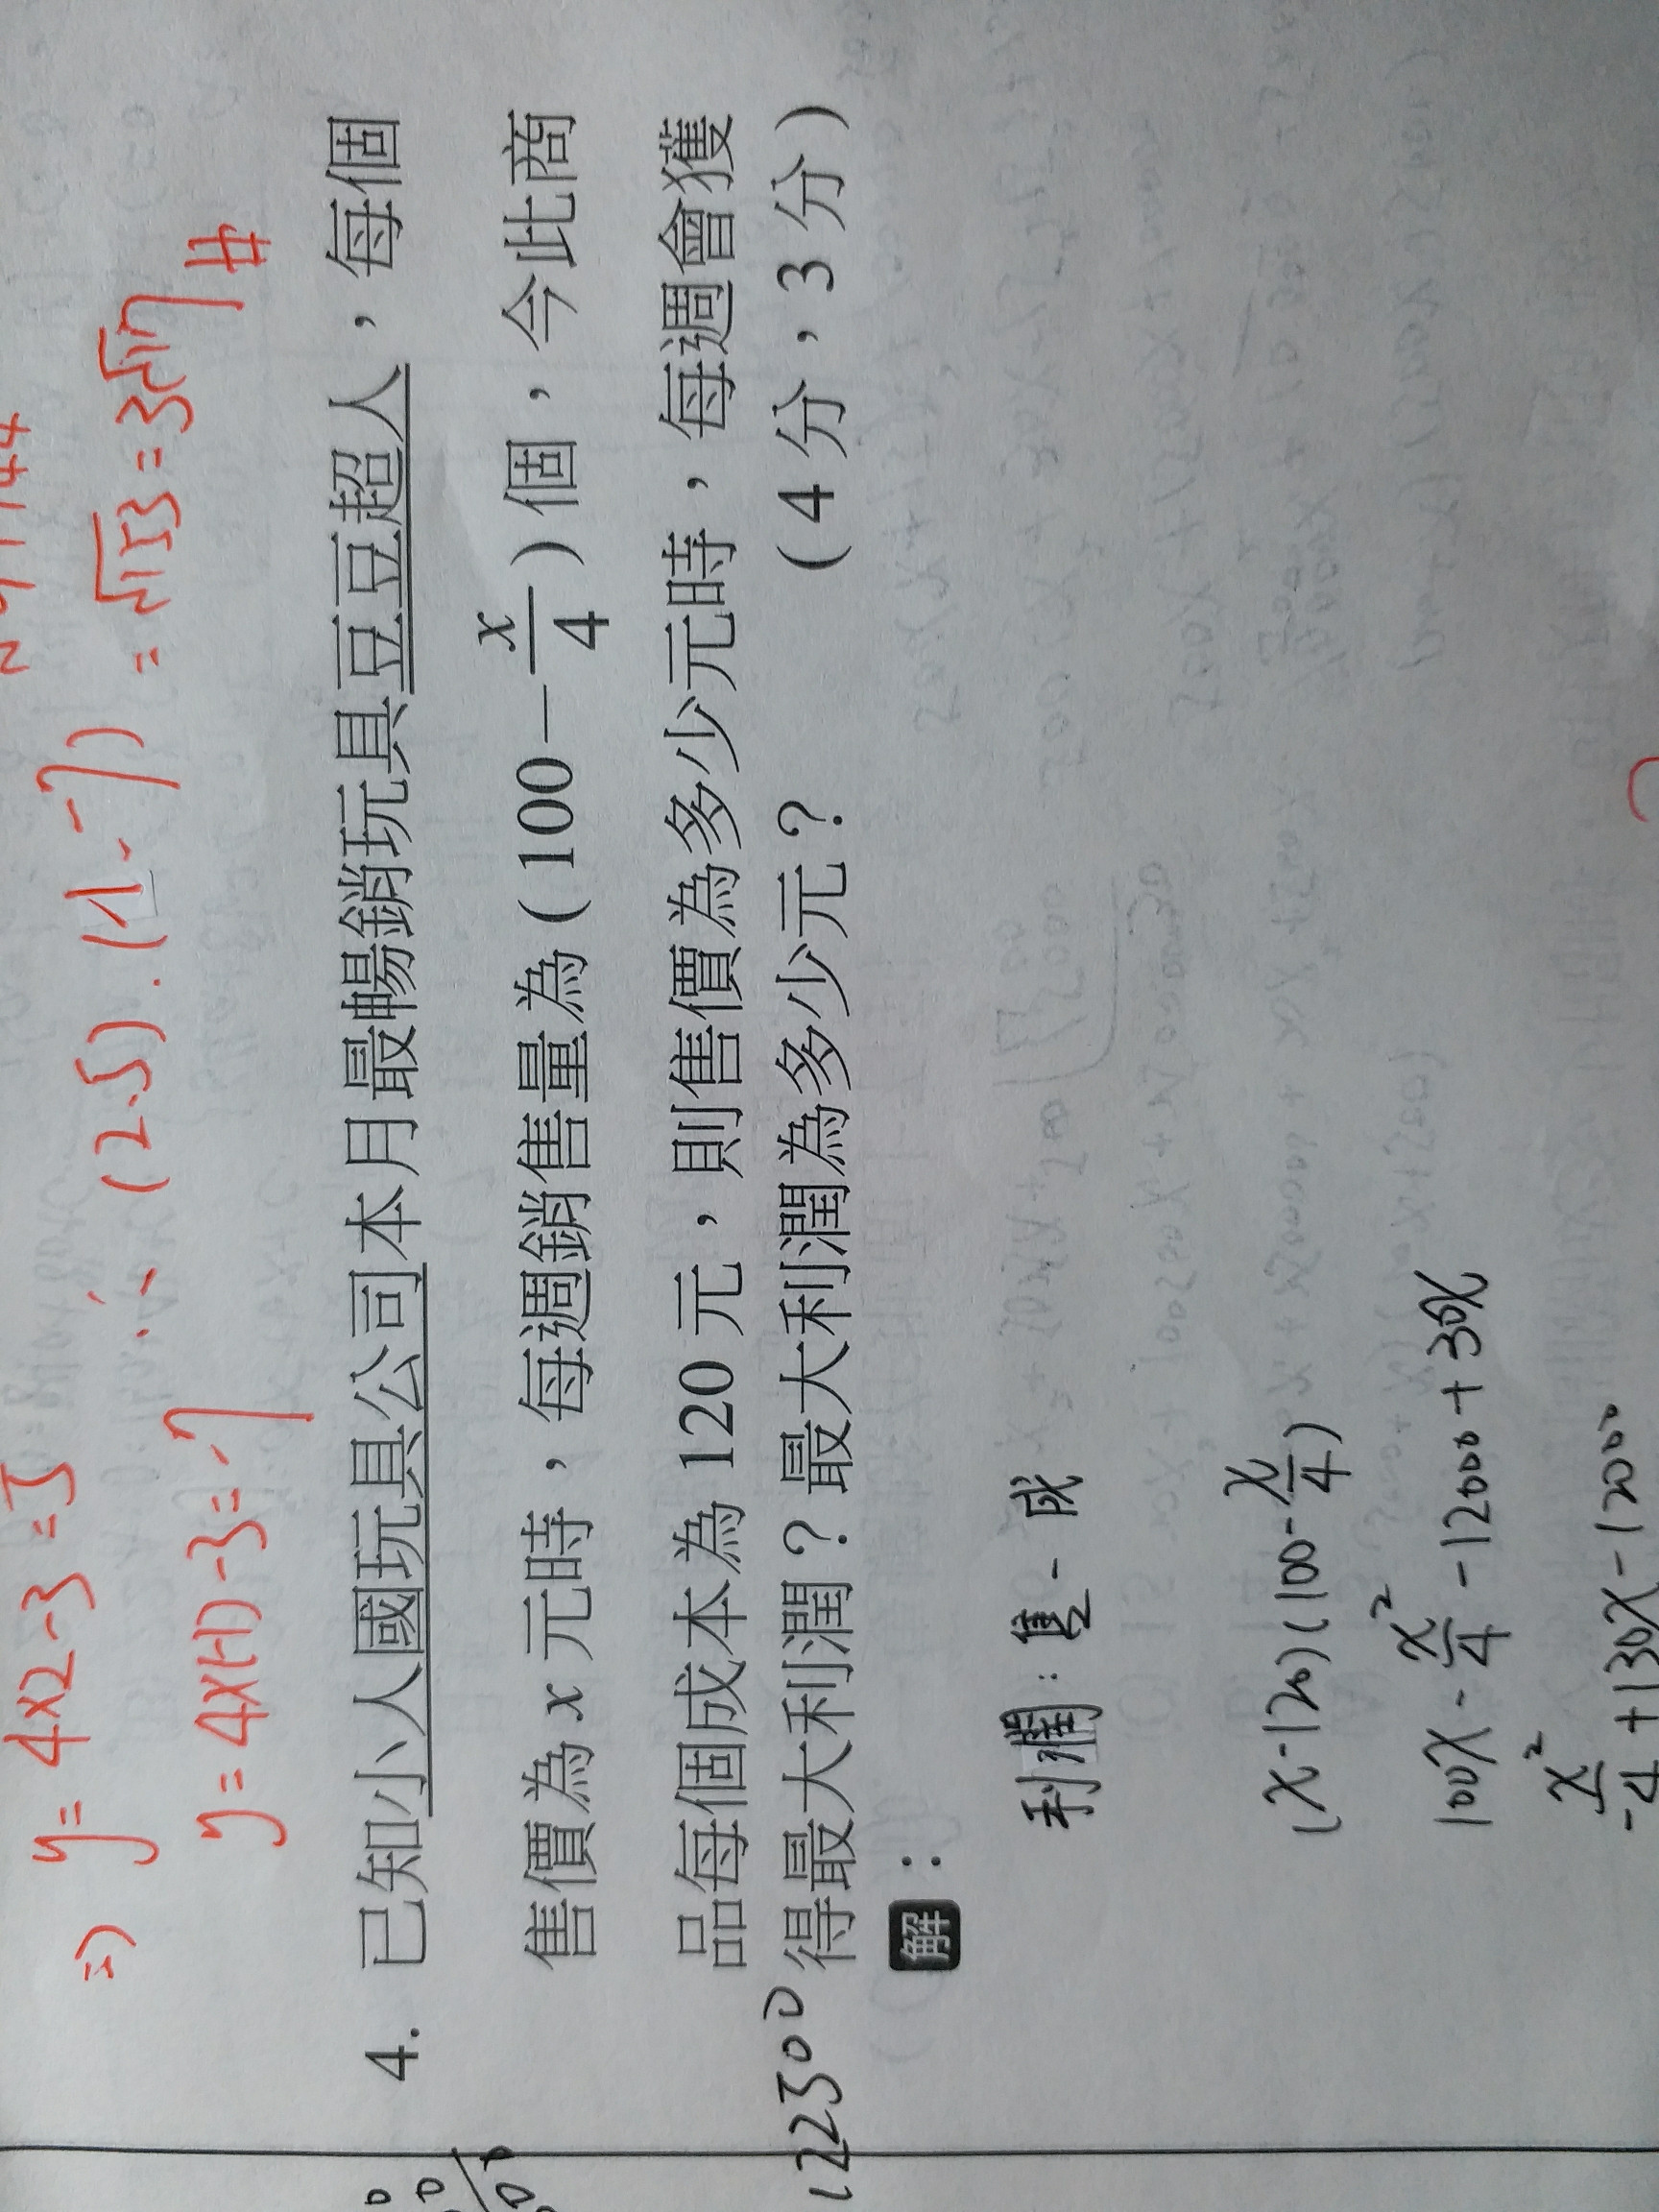 ⇒) y = 4×2-3 = 5
y = 4×(-1)-3 = -7
∴ (2,5).(-1,-7) = √153 = 3√17 #
4. 已知小人國玩具公司本月最暢銷玩具豆豆超人，每個
售價為 x 元時，每週銷售量為 (100－x/4) 個，今此商
品每個成本為 120 元，則售價為多少元時，每週會獲
得最大利潤？最大利潤為多少元？ (4 分，3 分)
解：
利潤：售 - 成
(x-120)(100-x/4)
100x - x²/4 - 12000 + 30x
-x²/4 + 130x - 12000